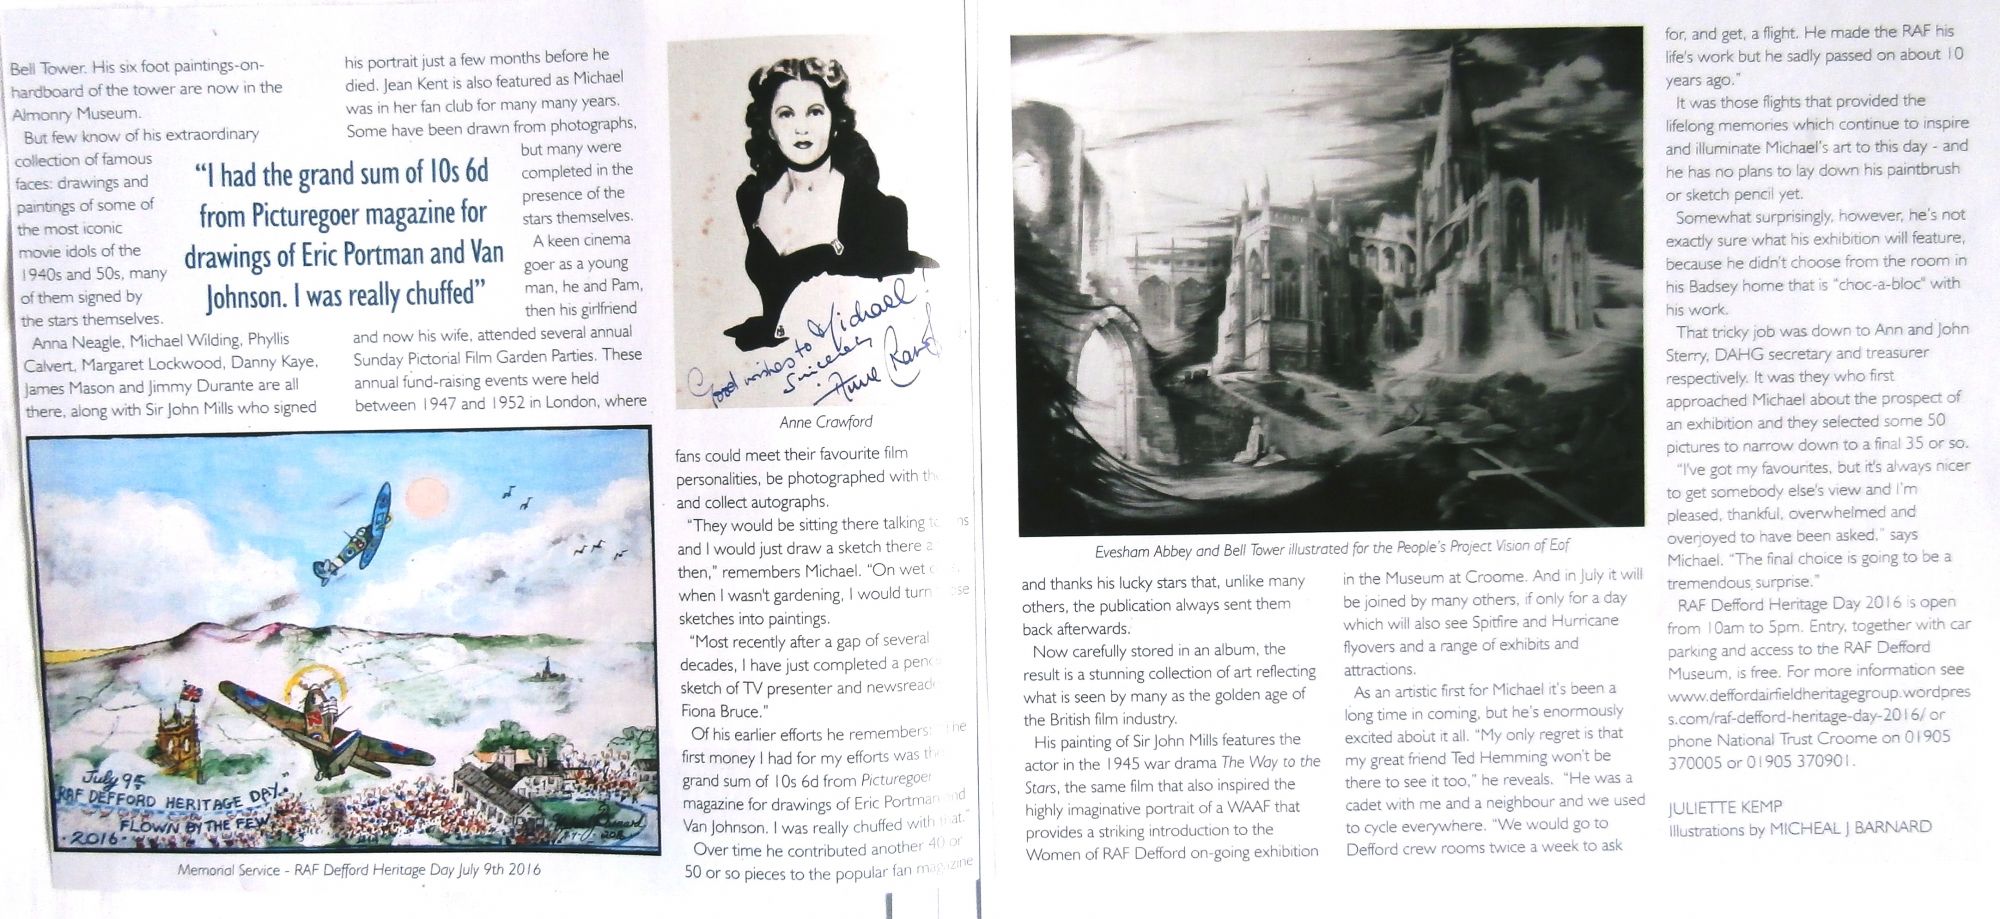 Bell Tower. His six foot paintings-on-
hardboard of the tower are now in the
Almonry Museum.
But few know of his extraordinary
collection of famous
faces: drawings and
paintings of some of
the most iconic
movie idols of the
1940s and 50s, many
of them signed by
the stars themselves.
Anna Neagle, Michael Wilding, Phyllis
Calvert, Margaret Lockwood, Danny Kaye,
James Mason and Jimmy Durante are all
there, along with Sir John Mills who signed
“I had the grand sum of 10s 6d
from Picturegoer magazine for
drawings of Eric Portman and Van
Johnson. I was really chuffed”
his portrait just a few months before he
died. Jean Kent is also featured as Michael
was in her fan club for many many years.
Some have been drawn from photographs,
but many were
completed in the
presence of the
stars themselves.
A keen cinema
goer as a young
man, he and Pam,
then his girlfriend
and now his wife, attended several annual
Sunday Pictorial Film Garden Parties. These
annual fund-raising events were held
between 1947 and 1952 in London, where
July 9th
RAF DEFFORD HERITAGE DAY.
FLOWN BY THE FEW
2016.
Memorial Service - RAF Defford Heritage Day July 9th 2016
Good wishes to Michael!
Sincerely
Anne Crawford
Anne Crawford
fans could meet their favourite film
personalities, be photographed with
and collect autographs.
“They would be sitting there talking
and I would just draw a sketch there
then,” remembers Michael. “On wet
when I wasn't gardening, I would turn
sketches into paintings.
“Most recently after a gap of several
decades, I have just completed a
sketch of TV presenter and
Fiona Bruce.”
Of his earlier efforts he remembers: “The
first money I had for my efforts was the
grand sum of 10s 6d from Picturegoer
magazine for drawings of Eric Portman and
Van Johnson. I was really chuffed with that.”
Over time he contributed another 40 or
50 or so pieces to the popular fan magazine
Evesham Abbey and Bell Tower illustrated for the People's Project Vision of Eof
and thanks his lucky stars that, unlike many
others, the publication always sent them
back afterwards.
Now carefully stored in an album, the
result is a stunning collection of art reflecting
what is seen by many as the golden age of
the British film industry.
His painting of Sir John Mills features the
actor in the 1945 war drama The Way to the
Stars, the same film that also inspired the
highly imaginative portrait of a WAAF that
provides a striking introduction to the
Women of RAF Defford on-going exhibition
in the Museum at Croome. And in July it will
be joined by many others, if only for a day
which will also see Spitfire and Hurricane
flyovers and a range of exhibits and
attractions.
As an artistic first for Michael it's been a
long time in coming, but he's enormously
excited about it all. “My only regret is that
my great friend Ted Hemming won't be
there to see it too,” he reveals. “He was a
cadet with me and a neighbour and we used
to cycle everywhere. “We would go to
Defford crew rooms twice a week to ask
for, and get, a flight. He made the RAF his
life's work but he sadly passed on about 10
years ago.”
It was those flights that provided the
lifelong memories which continue to inspire
and illuminate Michael's art to this day - and
he has no plans to lay down his paintbrush
or sketch pencil yet.
Somewhat surprisingly, however, he's not
exactly sure what his exhibition will feature,
because he didn't choose from the room in
his Badsey home that is “choc-a-bloc” with
his work.
That tricky job was down to Ann and John
Sterry, DAHG secretary and treasurer
respectively. It was they who first
approached Michael about the prospect of
an exhibition and they selected some 50
pictures to narrow down to a final 35 or so.
“I've got my favourites, but it's always nicer
to get somebody else's view and I'm
pleased, thankful, overwhelmed and
overjoyed to have been asked,” says
Michael. “The final choice is going to be a
tremendous surprise.”
RAF Defford Heritage Day 2016 is open
from 10am to 5pm. Entry, together with car
parking and access to the RAF Defford
Museum, is free. For more information see
www.deffordairfieldheritagegroup.wordpres
s.com/raf-defford-heritage-day-2016/ or
phone National Trust Croome on 01905
370005 or 01905 370901.
JULIETTE KEMP
Illustrations by MICHEAL J BARNARD